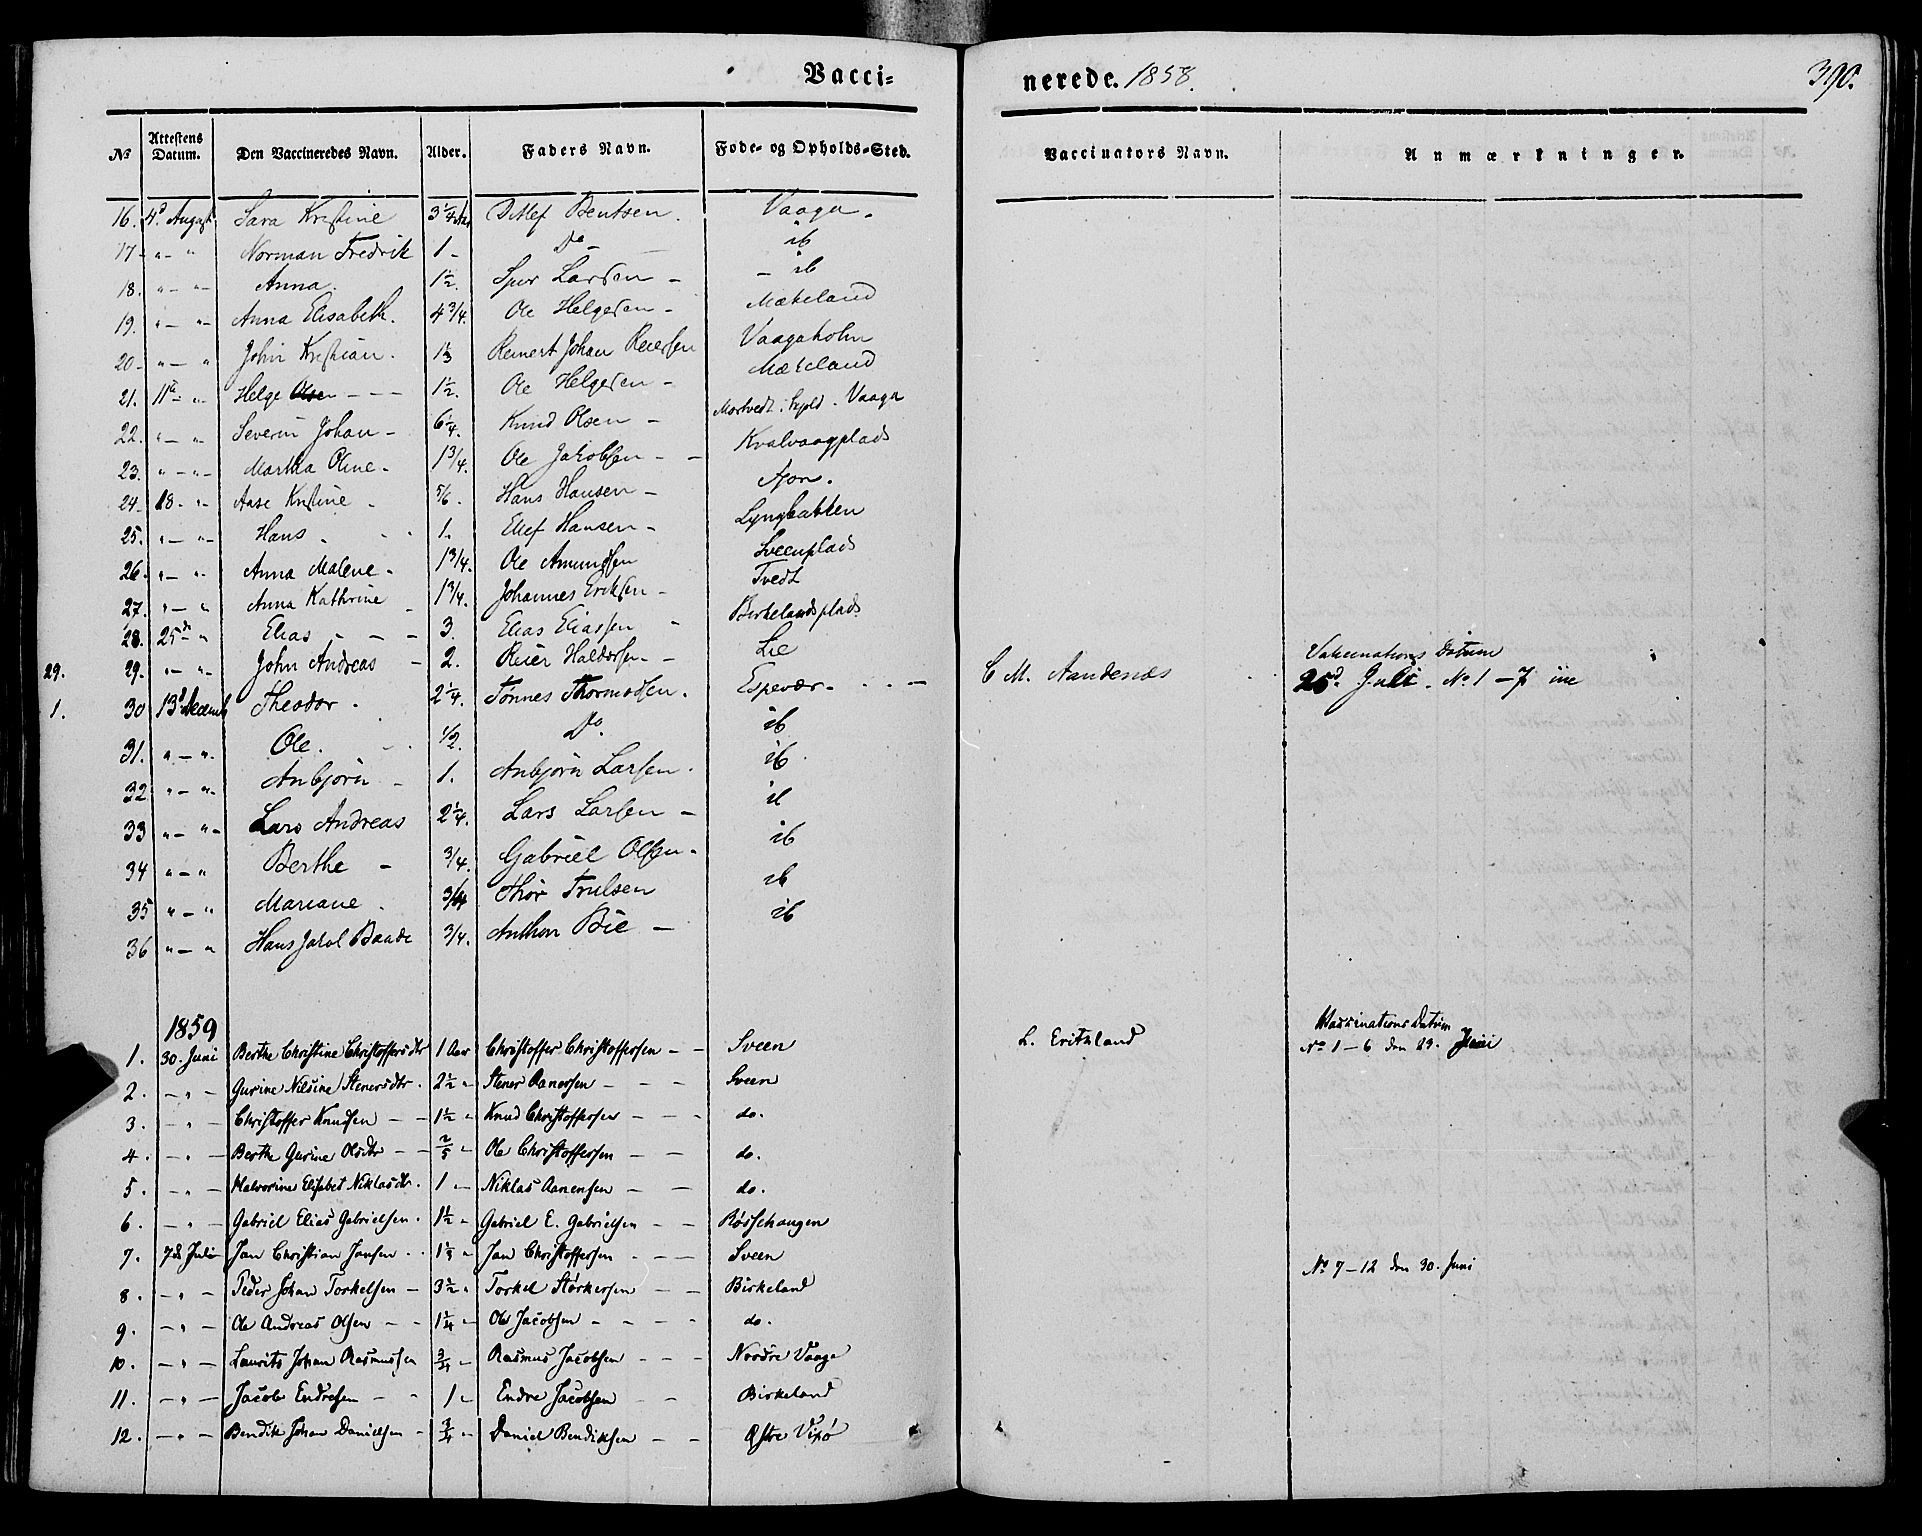 Vacci= nerede. 1858. 390.
No Attestens Datum. Den Vaccineredes Navn. Alder. Faders Navn. Føde- og Opholds-Sted. Vaccinators Navn. Anmærkninger.
16. 4d August Sara Kristine 3 1/4 Ditlef Bentsen. Vaaga.
17 " - " Norman Fredrik 1 - Do - ib
18. " - " - Anna. 1 1/2. Larsen - - ib
19. " - " - Anna Elisabeth. 4 3/4. Ole Helgesen - Mækeland
20 - " - " John Kristian. 1 1/3 Reinert Johan Reiersen Vaagaholm
21. 11te - " Helge Olsen - - - 1 1/2. Ole Helgesen - Mækeland
22. " - " - Severin Johan - 6 1/4. Knud Olsen - Mortvedt. Vaaga
23. " - " - Martha Oline - 1 3/4. Ole Jakobsen - - Kvalvaagplads
24. 18 - " - Aase Kristine - 5/6. Hans Hansen -
25. " - " - Hans 1. Ellef Hansen - Lyngbakken
26. " - " - Anna Malene - 1 3/4. Ole Amundsen Sveenplads
27. " - " Anna Kathrine - 1 3/4. Johannes Eriksen - Tvedt
28. 25de - " Elias - - - 3. Elias Eliassen - Birkelandsplads
29. 29. " - " - John Andreas - 2. Reier Haldorsen - - Lie
1. 30 13d Decemb Theodor. 2 1/4. Tønnes Thormodsen. Espevær - - - C M. Aandenæs Vakcinations Datum
25d. Juli. No. 1 - 7
31. " - " Ole. 1/2. Do. ib
32 " - " - Anbjörn - 1. Anbjörn Larsen. ib
33 " - " - Lars Andreas 2 1/4. Lars Larsen - ib
34 " - " Berthe - 3/4. Gabriel Olsen - ib
35 " - " Mariane. 3/4 Thor Trulsen ib
36 " - " Hans Jakob Baade 3/4. Anthon Bie - ib
1859
1. 30. Juni Berthe Christine Christoffersdtr 1 Aar Christoffer Christoffersen - - Sveen L. Erikland Vaccinations Datum
No 1 - 6 den 29. Juni
2. - " - Gurine Nilsine Stenersdtr. 2 1/2 " Stener Aanersen - - - Sveen
3. - " - Christoffer Knudsen - - 1 1/2 " Knud Christoffersen - - - do.
4. - " - Berthe Gurine Olsdtr - - 2/3 " Ole Christoffersen - - do.
5. - " - Halvorine Elisabet Niklasdtr. 1 - Niklas Aanensen - - do.
6. - " - Gabriel Elias Gabrielsen. 1 1/2 " Gabriel E. Gabrielsen - - Røsschaugen
7. 7d Juli Jan Christian Jansen. . 1 1/3 " Jan Christoffersen - - - Sveen No 7 - 12 den 30. Juni
8. - " - Peder Johan Torkelsen - 3 1/2 " Torkel Størkersen - - Birkeland
9. - " - Ole Andreas Olsen - - 1 1/4 - Ole Jacobsen - - - - do.
10. - " - Laurits Johan Rasmussen 3/4 - Rasmus Jacobsen - - - Nordre Vaage
11. - " - Jacob Endresen - - 1 - Endre Jacobsen - - Birkeland
12. - " - Bendik Johan Danielsen - 3/4 - Daniel Bendiksen - - Østre Vipø